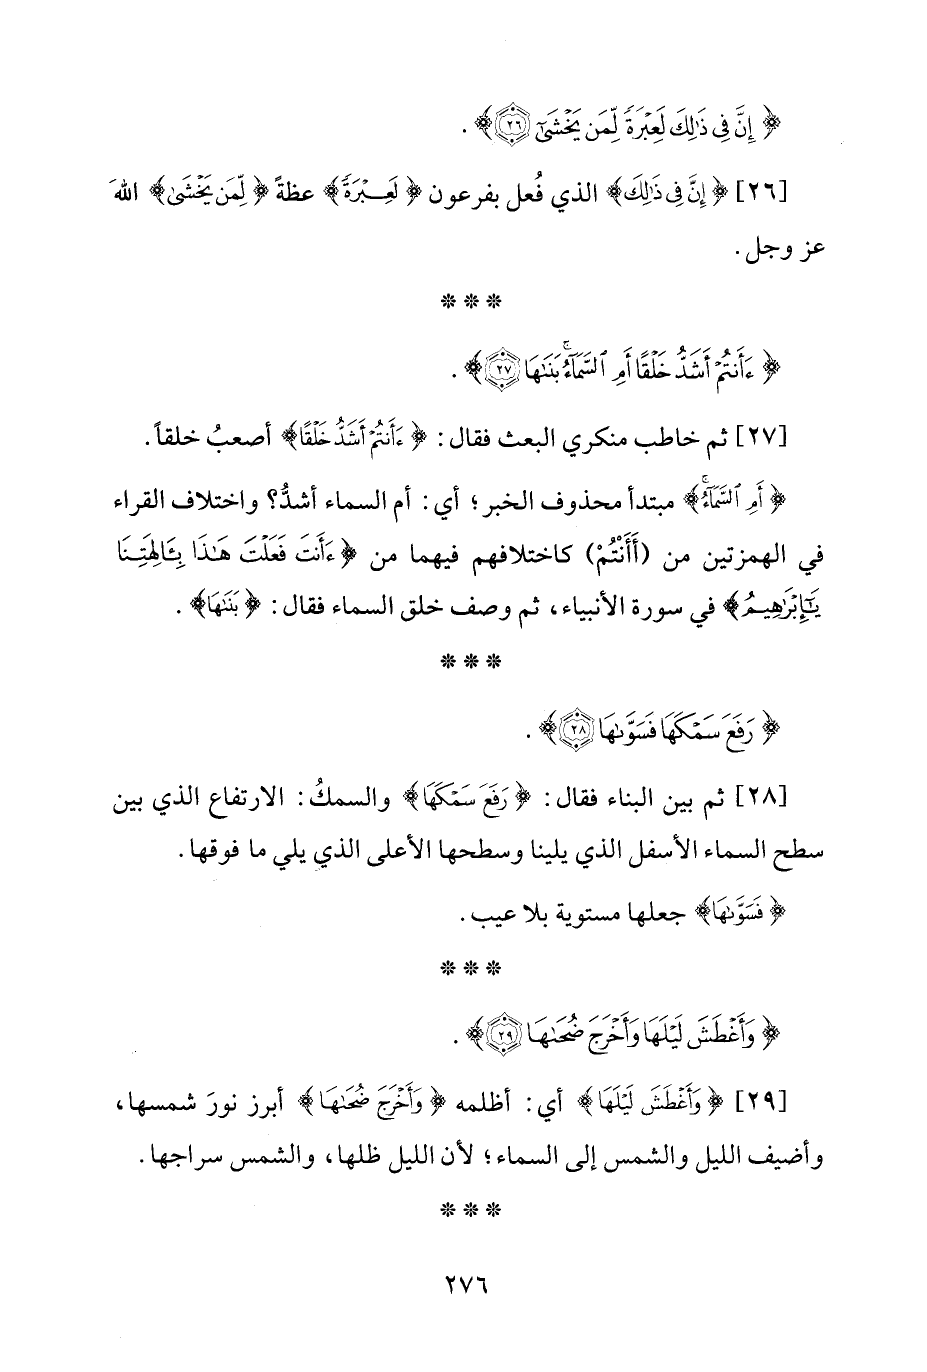 ﴿ إِنَّ فِي ذَٰلِكَ لَعِبْرَةً لِّمَن يَخْشَىٰٓ ٢٦ ﴾ .
[٢٦] ﴿ إِنَّ فِي ذَٰلِكَ ﴾ الذي فُعل بفرعون ﴿ لَعِبْرَةً ﴾ عظةً ﴿ لِّمَن يَخْشَىٰ ﴾ اللهَ
عز وجل .
* * *
﴿ ءَأَنتُمْ أَشَدُّ خَلْقًا أَمِ ٱلسَّمَآءُ ۚ بَنَىٰهَا ٢٧ ﴾ .
[٢٧] ثم خاطب منكري البعث فقال : ﴿ ءَأَنتُمْ أَشَدُّ خَلْقًا ﴾ أصعبُ خلقاً .
﴿ أَمِ ٱلسَّمَآءُ ۚ ﴾ مبتدأ محذوف الخبر ؛ أي : أم السماء أشدُّ؟ واختلاف القراء
في الهمزتين من (أَأَنْتُمْ) كاختلافهم فيهما من ﴿ ءَأَنتَ فَعَلْتَ هَٰذَا بِـَٔالِهَتِنَا
يَٰٓإِبْرَٰهِيمُ ﴾ في سورة الأنبياء، ثم وصف خلق السماء فقال : ﴿ بَنَىٰهَا ﴾ .
* * *
﴿ رَفَعَ سَمْكَهَا فَسَوَّىٰهَا ٢٨ ﴾ .
[٢٨] ثم بين البناء فقال : ﴿ رَفَعَ سَمْكَهَا ﴾ والسمكُ : الارتفاع الذي بين
سطح السماء الأسفل الذي يلينا وسطحها الأعلى الذي يلي ما فوقها .
﴿ فَسَوَّىٰهَا ﴾ جعلها مستوية بلا عيب .
* * *
﴿ وَأَغْطَشَ لَيْلَهَا وَأَخْرَجَ ضُحَىٰهَا ٢٩ ﴾ .
[٢٩] ﴿ وَأَغْطَشَ لَيْلَهَا ﴾ أي : أظلمه ﴿ وَأَخْرَجَ ضُحَىٰهَا ﴾ أبرز نورَ شمسها،
وأضيف الليل والشمس إلى السماء ؛ لأن الليل ظلها، والشمس سراجها .
* * *
٢٧٦